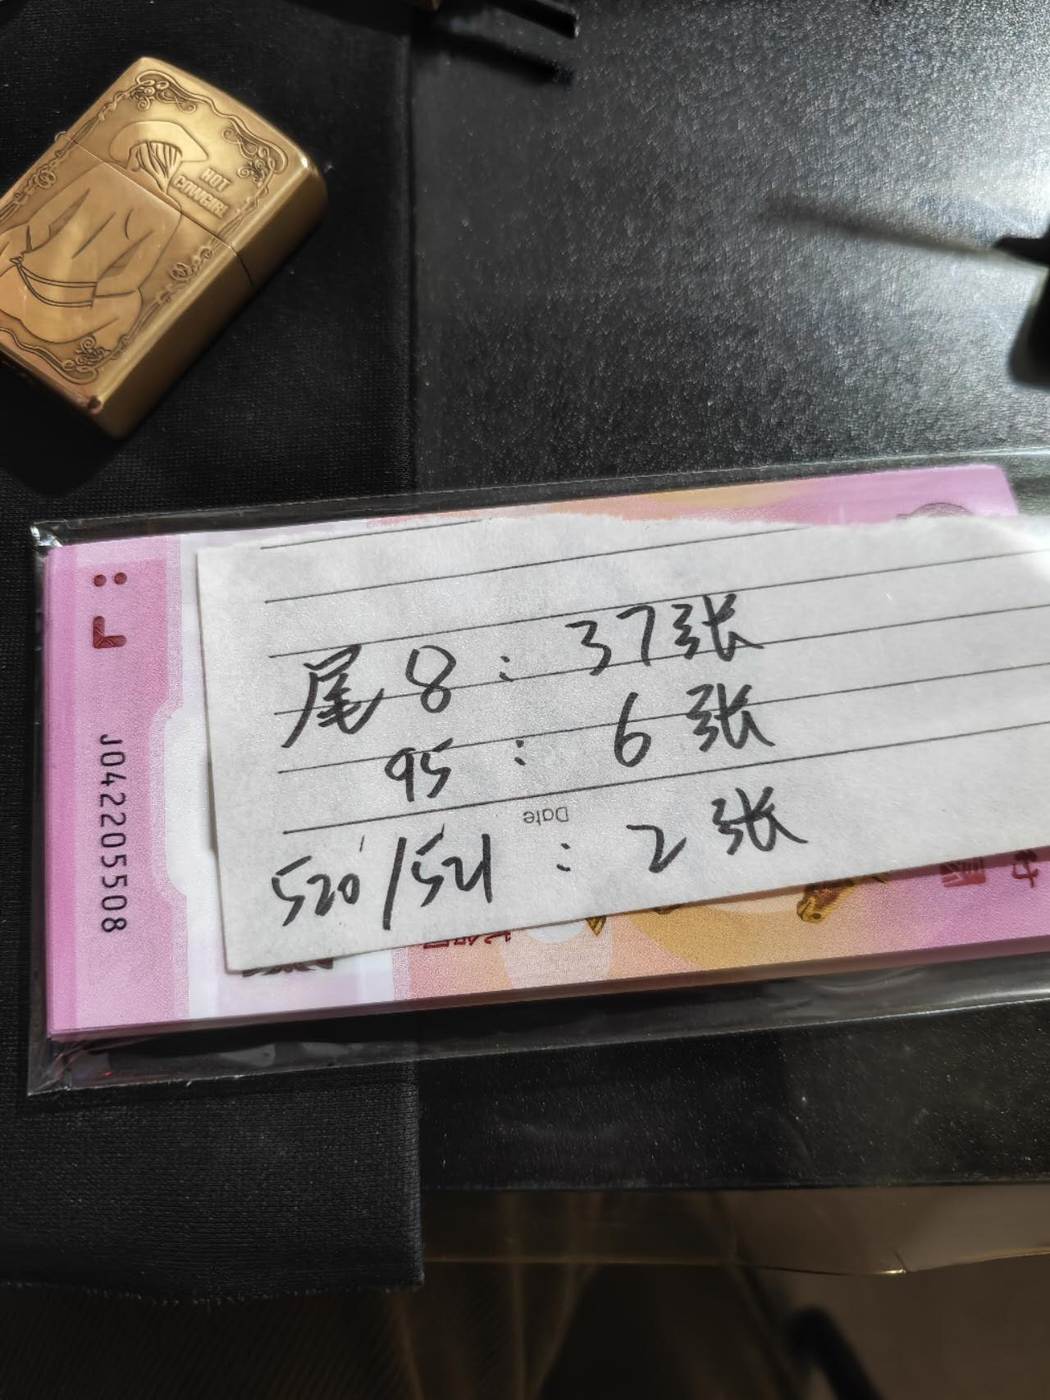 HOT
COWGIRL
尾8：37张
95：6张
Date
520/521：2张
J042205508